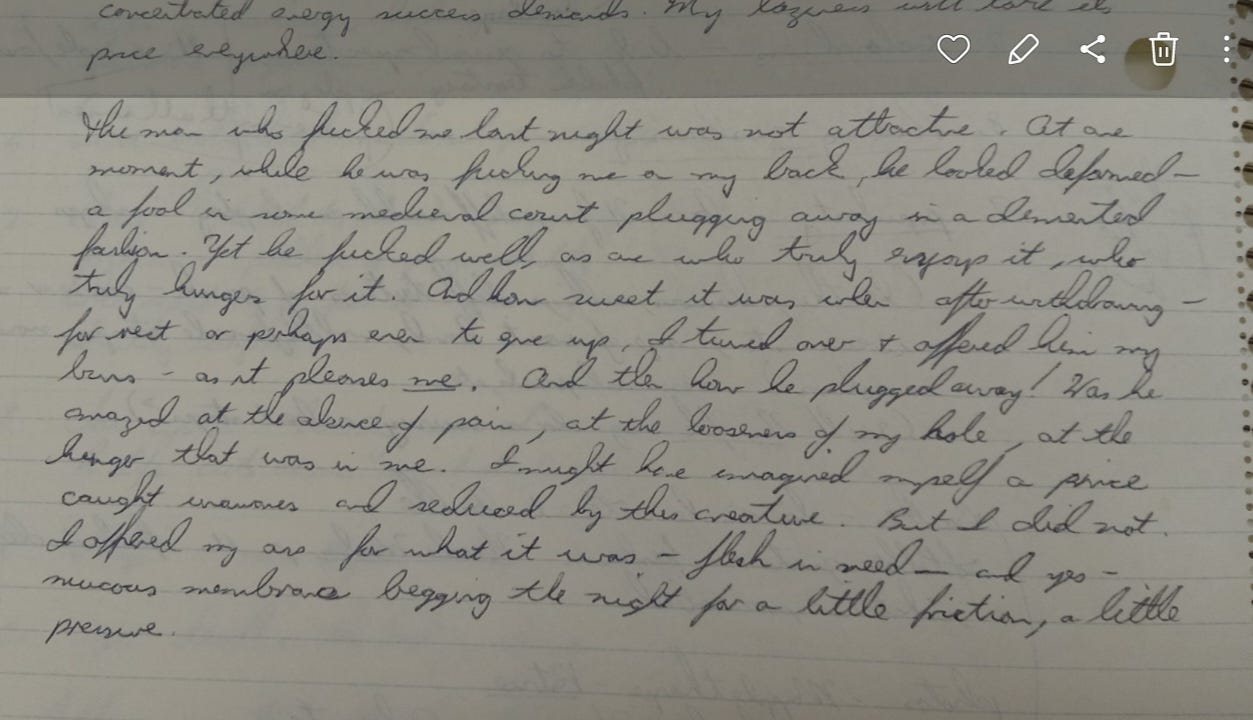 concentrated energy success demands. My laziness will take its
price everywhere.
The man who fucked me last night was not attractive. At one
moment, while he was fucking me on my back, he looked deformed—
a fool in some medieval court plugging away in a demented
fashion. Yet he fucked well, as one who truly enjoys it, who
truly hungers for it. And how sweet it was when after withdrawing —
for rest or perhaps even to give up, I turned over & offered him my
buns - as it pleases me. And then how he plugged away! Was he
amazed at the absence of pain, at the looseness of my hole, at the
hunger that was in me. I might have imagined myself a prince
caught unawares and seduced by this creature. But I did not.
I offered my ass for what it was — flesh in need — and yes -
mucous membrane begging the night for a little friction, a little
pressure.